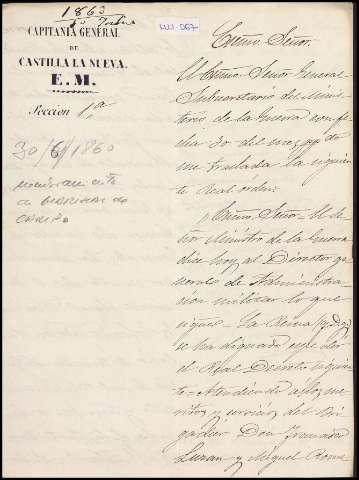 1863
CAPITANÍA GENERAL
DE
CASTILLA LA NUEVA.
E. M.
Seccion 1.a
30/6/1860
nombramiento
de
Exmo. Señor.
El Exmo. Señor General
Subsecretario del Minis-
terio de la Guerra con fe-
cha 30 del mes ppdo
me traslada la siguien-
te Real órden:
"Exmo. Señor= El Se-
ñor Ministro de la Guerra
dice hoy al Director ge-
neral de Administra-
cion militar lo que
sigue= La Reina (q. D. g.)
se ha dignado espedir
el Real Decreto siguien-
te= Atendiendo a los me-
ritos y servicios del Bri-
gadier Don Francisco
Luxan y Miguel Rome